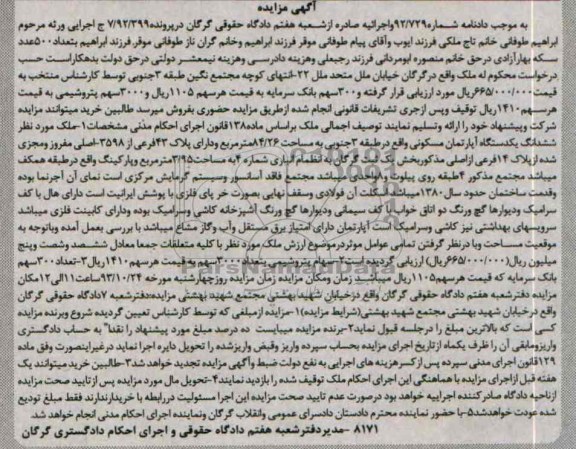 آگهی مزایده
به موجب دادنامه شماره ۹۲/۷۲۹واجرائیه صادره ازشعبه هفتم دادگاه حقوقی گرگان درپرونده۷/۹۲/۳۹۹ ج اجرایی ورثه مرحوم
ابراهیم طوفانی خانم تاج ملکی فرزند ایوب وآقای پیام طوفانی موقر فرزند ابراهیم وخانم گران ناز طوفانی موقر فرزند ابراهیم بتعداد۵۰۰عدد
سکه بهارآزادی درحق خانم منصوره ابومردانی فرزند رجبعلی وهزینه دادرسی وهزینه نیمعشر دولتی درحق دولت بدهکاراست حسب
درخواست محکوم له ملک واقع درگرگان خیابان ملل متحد ملل ۲۲-انتهای کوچه مجتمع نگین طبقه ۳جنوبی توسط کارشناس منتخب به
قیمت۶۶۵/۰۰۰/۰۰۰ریال مورد ارزیابی قرار گرفته و۳۰۰سهم بانک سرمایه به قیمت هرسهم ۱۱۰۵ریال و۳۰۰۰سهم پتروشیمی به قیمت
هرسهم۱۴۱۰ریال توقیف وپس ازجری تشریفات قانونی انجام شده ازطریق مزایده حضوری بفروش میرسد طالبین خرید میتوانند مزایده
شرکت وپیشنهاد خود را ارائه وتسلیم نمایند توصیف اجمالی ملک براساس ماده۱۳۸قانون اجرای احکام مدنی مشخصات۱-ملک مورد نظر
ششدانگ یکدستگاه آپارتمان مسکونی واقع درطبقه ۳جنوبی به مساحت۸۴/۲۶مترمربع ودارای پلاک ۴۳فرعی از۳۵۹۸-اصلی مفروز ومجزی
شده ازپلاک ۱۴فرعی ازاصلی مذکوربخش گرگان به انضمام انباری شماره ۴به مساحت۳/۹۵مترمربع وپارکینگ واقع درطبقه همکف
میباشد مجتمع مذکور ۴طبقه روی پیلوت میباشد مجتمع فاقد آسانسور وسیستم گرمایش مرکزی است نمای آن آجرنما بوده
وقدمت ساختمان حدود سال۱۳۸۰میباشد اسکلت آن فولادی وسقف نهایی بصورت خر پای فلزی با پوشش ایرانیت است دارای هال با کف
سرامیک ودیوارها گچ ورنگ دو اتاق خواب با کف سیمانی ودیوارها گچ ورنگ آشپزخانه کاشی وسرامیک بوده ودارای کابینت فلزی میباشد
سرویسهای بهداشتی نیز کاشی وسرامیک است آپارتمان دارای امتیاز برق مستقل وآب وگاز مشاع میباشد با بررسی بعمل آمده وباتوجه به
موقعیت مساحت وبا درنظر گرفتن تمامی عوامل موثردرموضوع ارزش ملک مورد نظر با کلیه متعلقات جمعا معادل ششصد وشصت وپنج
میلیون ریال(۶۶۵/۰۰۰/۰۰۰ریال) ارزیابی گردیده است۲-سهام پتروشیمی بتعداد۳۰۰۰سهم به قیمت هرسهم۱۴۱۰ریال۳-تعداد۳۰۰سهم
بانک سرمایه که قیمت هرسهم۱۱۰۵ریال میباشد زمان ومکان مزایده زمان مزایده روزچهارشنبه مورخه ۹۳/۱۰/۲۴ساعت۱۱الی۱۲مکان
مزایده دفترشعبه هفتم دادگاه حقوقی گرگان واقع درخیابان شهید بهشتی مجتمع شهید بهشتی مزایده:دفترشعبه ۷دادگاه حقوقی گرگان
واقع درخیابان شهید بهشتی مجتمع شهید بهشتی(شرایط مزایده)۱-مزایده ازمبلغی که توسط کارشناس تعیین گردیده شروع وبرنده مزایده
کسی است که بالاترین مبلغ را درجلسه قبول نماید۲-برنده مزایده میبایست ده درصد مبلغ مورد پیشنهاد را نقدا" به حساب دادگستری
واریزومابقی آن را ظرف یکماه ازتاریخ اجرای مزایده بحساب سپرده واریز وقبض واریزشده را تحویل دایره اجرا نماید درغیراینصورت وفق ماده
۱۲۹قانون اجرای مدنی سپرده پس از کسرهزینه های اجرایی به نفع دولت ضبط وآگهی مزایده تجدید خواهد شد۳-طالبین خرید میتوانند یک
هفته قبل ازاجرای مزایده با هماهنگی این اجرای احکام ملک توقیف شده را بازدید نمایند۴-تحویل مال مورد مزایده پس ازتایید صحت مزایده
ازناحیه دادگاه صادرکننده اجراییه خواهد بود درصورت عدم تایید صحت مزایده این اجرا مسئولیت دررابطه با خریدارندارند فقط مبلغ تودیع
شده عودت خواهدشد۵-با حضور نماینده محترم دادستان دادسرای عمومی وانقلاب گرگان ونماینده اجرای احکام مدنی انجام خواهد شد.
۸۱۷۱ -مدیردفترشعبه هفتم دادگاه حقوقی و اجرای احکام دادگستری گرگان